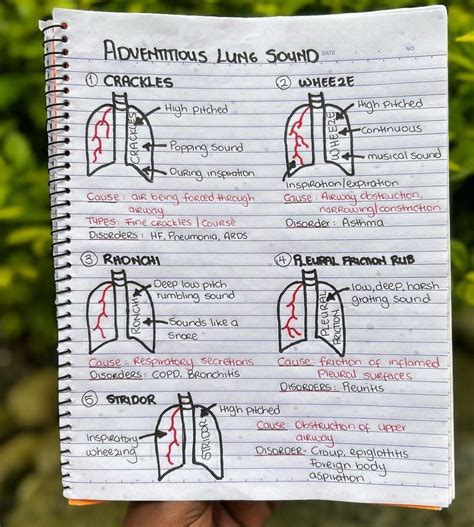 ADVENTITIOUS LUNG SOUND
DATE
NO
① CRACKLES
High Pitched
CRACKLES
Popping sound
During inspiration
Cause: air being forced through
airway
TYPES: Fine crackles / Course
Disorders: HF, Pneumonia, ARDS
② WHEEZE
High Pitched
WHEEZE
Continuous
musical sound
Inspiration/expiration
Cause: Airway obstruction,
narrowing/constriction
Disorder: Asthma
③ RHONCHI
Deep low pitch
rumbling sound
RONCHI
Sounds like a
Snore
Cause: Respiratory secretions
Disorders: COPD, Bronchitis
④ PLEURAL FRICTION RUB
low, deep, harsh
grating sound
PLEURAL
FRICTION
Cause: friction of inflamed
Pleural surfaces
DISORDERS: Pleuritis
⑤ STRIDOR
High pitched
Inspiratory
wheezing
STRIDOR
Cause: Obstruction of upper
airway
Disorder- Croup, epiglottitis
foreign body
aspiration